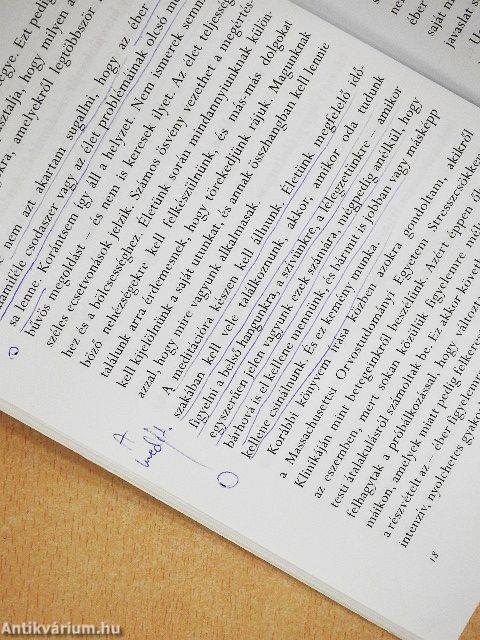 egye. Ezt pedig
sztalja, hogy milyen a
okra, amelyekről legtöbbször
e nem azt akartam sugallni, hogy az éber
amiféle csodaszer vagy az élet problémáinak olcsó me
sa lenne. Korántsem így áll a helyzet. Nem ismerek semm
bűvös megoldást – és nem is keresek ilyet. Az élet teljesség
széles ecsetvonások jelzik. Számos ösvény vezethet a megértés-
hez és a bölcsességhez. Életünk során mindannyiunknak külön-
böző nehézségekre kell felkészülnünk, és más-más dolgokat
találunk arra érdemesnek, hogy törekedjünk rájuk. Magunknak
kell kijelölnünk a saját utunkat, és annak összhangban kell lennie
azzal, hogy mire vagyunk alkalmasak.
A meditációra készen kell állnunk. Életünk megfelelő idő-
szakában kell vele találkoznunk, akkor, amikor oda tudunk
figyelni a belső hangunkra, a szívünkre, a lélegzetünkre – amikor
egyszerűen jelen vagyunk ezek számára, mégpedig anélkül, hogy
bárhová is el kellene mennünk, és bármit is jobban vagy másképp
kellene csinálnunk. És ez kemény munka.
Korábbi könyvem írása közben azokra gondoltam, akikről
a Massachusettsi Orvostudományi Egyetem Stresszcsökken
Klinikáján mint betegeinkről beszélünk. Azért éppen ők
az eszemben, mert sokan közülük figyelemre mél
testi átalakulásról számoltak be. Ez akkor követ
felhagytak a próbálkozással, hogy változt
máikon, amelyek miatt pedig felkeres
a részvételt az – éber figyelemre
intenzív, nyolchetes gyako
18
éber
saját m
javadat s
A
Antikvárium.hu